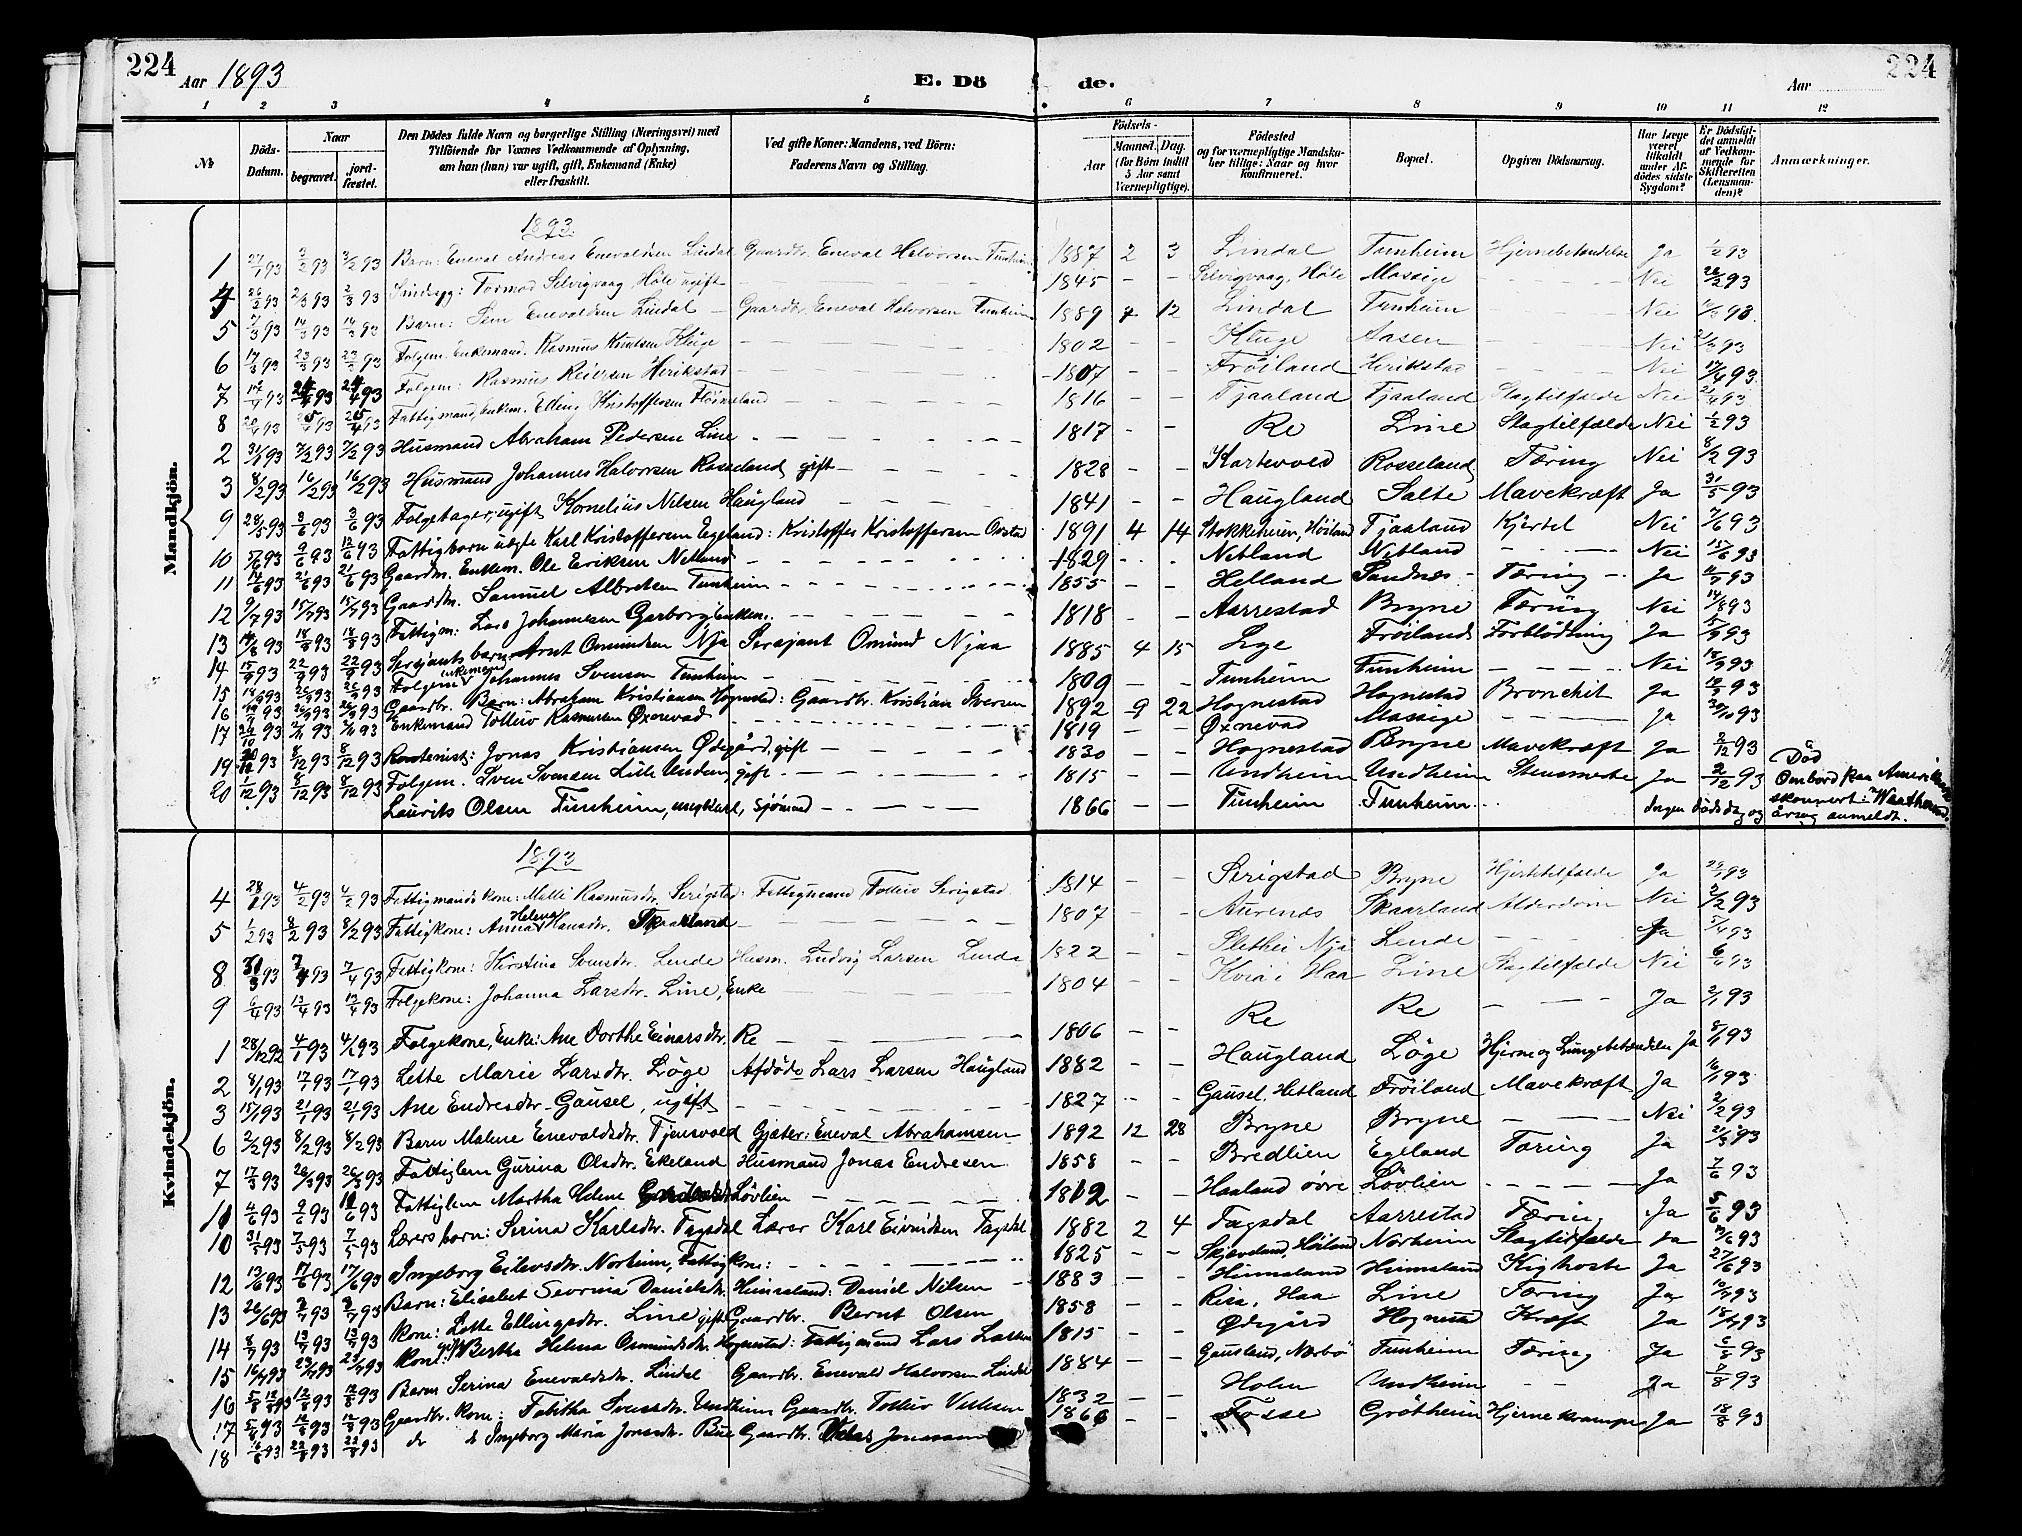 224
Aar 1893
E. Dö de.
Aar
224
1 2 3 4 5 6 7 8 9 10 11 12
№
Döds-Datum.
Naar
begravet.
jord-fæstet.
Den Dödes fulde Navn og borgerlige Stilling (Næringsvei) med
Tilföiende for Voxnes Vedkommende af Oplysning,
om han (hun) var ugift, gift, Enkemand (Enke)
eller fraskilt.
Ved gifte Koner: Mandens, ved Börn:
Faderens Navn og Stilling.
Födsels-
Aar
Maaned. Dag.
(for Börn indtil
5 Aar samt
Værnepligtige).
Födested
og for værnepligtige Mandska-
ber tillige: Naar og hvor
konfirmeret.
Bopæl.
Opgiven Dödsaarsag.
Har Læge
været
tilkaldt
under Af-
dödes sidste
Sygdom?
Er Dödsfal-
det anmeldt
af Vedkom-
mende for
Skifteretten
(Lensman-
den)?
Anmærkninger.
Mandkjön.
1893.
1 27/1 93 3/2 93 3/2 93 Barn: Eneval Andreas Enevaldsen Lindal Gaardbr. Eneval Halvorsen Tunheim 1887 2 3 Lindal Tunheim Hjernebetændelse Ja 1/2 93
4 26/2 93 2/3 93 2/3 93 Sindssyg: Tormod Selvigvaag Höle ugift 1845 - - Selvigvaag, Höle Massige Nei 28/2 93
5 7/3 93 14/3 93 14/3 93 Barn: Sem Enevaldsen Lindal - Gaardbr. Eneval Halvorsen Tunheim 1889 7 12 Lindal Tunheim Nei
6 17/3 93 23/3 93 23/3 93 Folgem. Enkemand. Rasmus Knudsen Kluge 1802 - - Kluge Aasen Nei
7 93 24/4 93 24/4 93 Folgem: Rasmus Reiersen Herikstad 1807 - - Fröiland Herikstad Nei 17/4 93
8 20/4 93 25/4 93 25/4 93 Fattigmand, Enkem. Elling Kristoffersen 1816 - - Tjaaland Tjaaland Slagtilfælde Nei 21/4 93
2 31/1 93 7/2 93 7/2 93 Husmand Abraham Pedersen Line 1817 - - Re Line Slagtilfælde Nei 1/2 93
3 8/2 93 16/2 93 16/2 93 Husmand Johannes Halvorsen Rosseland, gift 1828 - - Kartevold Rosseland Tæring Nei 8/2 93
9 28/5 93 3/6 93 3/6 93 Folgetager, ugift Kornelius Nilsen Haugland 1841 - - Haugland Salte Mavekræft Ja 31/5 93
10 5/6 93 9/6 93 93 Fattigbarn uægte Karl Kristoffersen Egeland: Kristoffer Kristoffersen 1891 4 14 Stokkeheien, Höiland Tjaaland Kjertel Nei 7/6 93
11 14/6 93 21/6 93 21/6 93 Gaardm. Enkem. Ole Eriksen Netland 1829 Netland Netland Nei 15/6 93
12 9/7 93 15/7 93 15/7 93 Gaardbr. Samuel Albretsen Tunheim 1855 - - Helland Sandnes Tæring Ja 11/7 93
13 14/8 93 18/8 93 18/8 93 Fattigm: Lars Johannesen Garborg, enkem. 1818 - - Aarrestad Bryne Tæring Nei 14/8 93
14 15/9 93 22/9 93 22/9 93 Sersjants barn: Arnt Omundsen Njå Sersjant Omund Njaa 1885 4 15 Lye Fröiland Forblödning Ja 15/9 93
15 93 26/9 93 26/9 93 Folgem. enkemand Johannes Svensen Tunheim 1809 - - Tunheim Tunheim Nei 18/9 93
16 93 26/9 93 26/9 93 Gaardbr. Barn: Abraham Kristiansen Hognestad: Gaardbr. Kristian Iversen 1892 9 22 Hognestad Hognestad Bronchit Ja 19/9 93
17 26/10 93 2/11 93 2/11 93 Enkemand Tolleiv Rasmusen Øxnevad 1819 - - Øxnevad Massige Ja 30/10 93
19 93 8/12 93 8/12 93 Jonas Kristiansen Ødegård, gift 1830 - - Hognestad Bryne Mavekræft Ja 2/12 93
20 1/12 93 8/12 93 8/12 93 Folgem. Sven Svensen Lille Undem, gift 1815 - - Undheim Undheim Stensmerte Ja 2/12 93
Laurits Olsen Tunheim, ungkarl, Sjömand 1866 Tunheim Tunheim Ingen dödsdag og årsag anmeldt.
Död
Ombord paa Amerikansk
skonnert:
Kvindekjön.
1893
4 28/1 93 4/2 93 4/2 93 Fattigmands kone: Malli Rasmusdtr. Serigstad: Fattigmand Tolleiv Serigstad 1814 - - Serigstad Bryne Hjertetilfælde Ja 29/1 93
5 1/2 93 8/2 93 8/2 93 Fattigkone: Anna Helena Hansdtr. Skaarland 1807 - Aurenes Skaarland Alderdom Nei 2/2 93
8 31/3 93 7/4 93 7/4 93 Fattigkone: Kirstina Svensdtr. Lende Husm. Ludvig Larsen Lende 1822 Slethei Njå Lende Ja 5/4 93
9 6/4 93 13/4 93 13/4 93 Folgekone: Johanna Larsdtr. Line, Enke 1804 Kviåi Haa Line Slagtilfælde Nei 6/4 93
1 28/12 92 4/1 93 4/1 93 Folgekone, Enke: Ane Dorthe Einarsdtr. Re 1806 - - Re Re Ja 2/1 93
2 8/1 93 17/1 93 17/1 93 Lette Marie Larsdtr. Löge Afdöde Lars Larsen Haugland 1882 - - Haugland Löge Hjerne og Lungebetændelse Ja 8/1 93
3 15/1 93 21/1 93 21/1 93 Ane Endresdtr. Gausel, ugift 1827 Gausel, Hetland Fröiland Mavekræft Ja 16/1 93
6 2/2 93 8/2 93 8/2 93 Barn Malene Enevaldsdtr. Tjensvold Gjæter: Eneval Abrahamsen 1892 12 28 Bryne Bryne Nei 2/2 93
7 17/3 93 26/3 93 26/3 93 Fattiglem Gurina Olsdtr. Ekeland Husmand Jonas Endresen 1858 - - Bredlien Egeland Tæring Ja 21/3 93
11 4/6 93 9/6 93 93 Fattiglem Martha Helene Lövlien 1812 - - Haaland övre Lövlien Ja 7/6 93
10 31/5 93 7/5 93 7/5 93 Lærers barn: Serina Karlsdtr. Tagsdal Lærer Karl Eivindsen Tagsdal 1882 2 4 Tagsdal Aarrestad Tæring Ja 5/6 93
12 13/6 93 17/6 93 17/6 93 Ingeborg Eilevsdtr. Norheim, Fattigkone: 1825 - - Skjæveland, Höiland Norheim Slagtilfælde Ja 93
13 26/6 93 3/7 93 3/7 93 Barn: Elisabet Severina Danielsdtr. Heimsland: Daniel Nilsen 1883 - - Heimsland Heimsland Kighoste Ja 27/6 93
14 8/7 93 13/7 93 13/7 93 Kone: Lette Ellingsdtr. Line gift Gaardbr. Bernt Olsen 1858 - - Risa, Haa Line Tæring Ja 10/7 93
15 16/7 93 93 93 Kone: gift Bertha Helena Osmundsdtr. Hognestad: Fattigmand Lars Larsen 1815 - - Ødegård Hognestad Kræft Ja 18/7 93
16 5/8 93 12/8 93 12/8 93 Barn Serina Enevaldsdtr. Lindal Gaardbr. Enevald Halvorsen Lindal 1884 - - Gausland, Nærbö Tunheim Tæring Ja 93
17 5/8 93 12/8 93 12/8 93 Gaardbr. kone: Tabitha Svensdtr. Undheim Gaardbr. Tolleiv 1832 - Holen Undheim Ja 7/8 93
18 16/8 93 22/8 93 22/8 93 do do Ingeborg Maria Jonasdtr. Bue Gaardbr. 186 - - Fosse Grötheim Hjernekrampe Ja 18/8 93